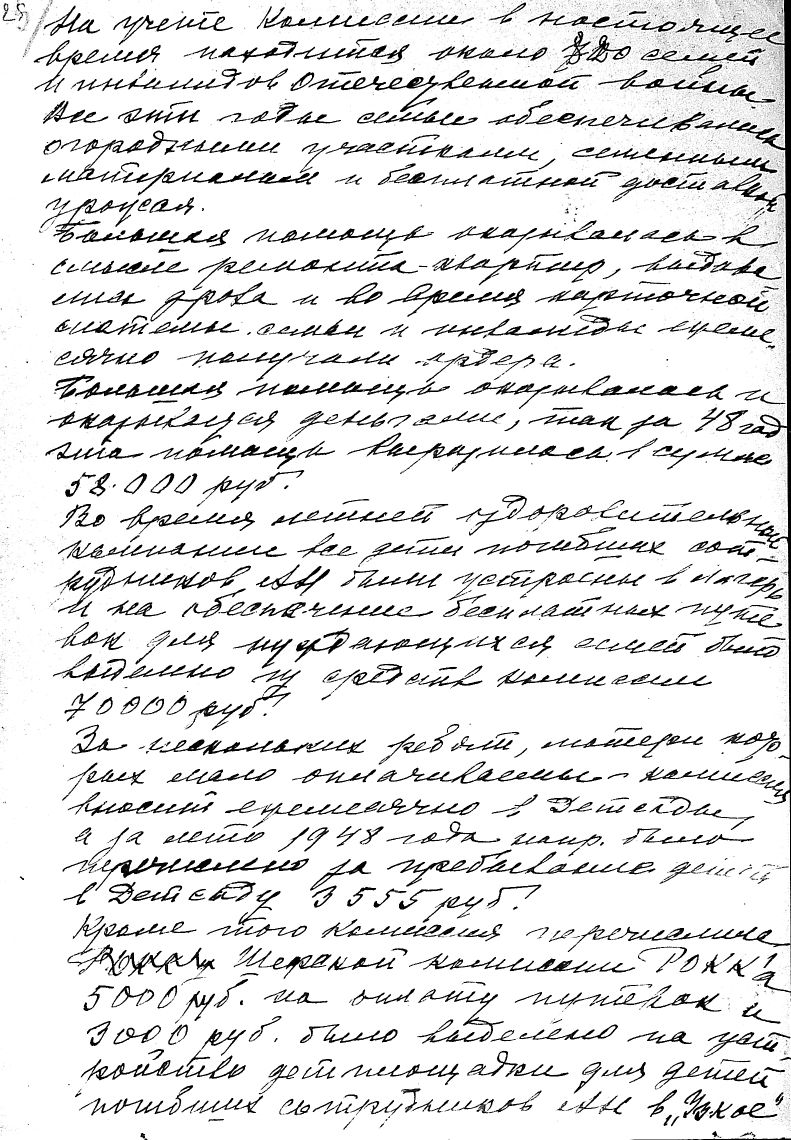 25
На учете Комиссии в настоящее
время находится около семей
и инвалидов Отечественной войны
Все эти годы семьи обеспечивались
огородными участками, семенным
материалом и бесплатной доставкой
урожая.
Большая помощь оказывалась в
смысле ремонта квартир, выдава
лись дрова и во время карточной
системы семьи и инвалиды ежеме-
сячно получали ордера.
Большая помощь оказывалась и
оказывается деньгами, так за 48 год
эта помощь выразилась в сумме
58.000 руб.
Во время летней оздоровительной
кампании все дети погибших сот-
рудников АН были устроены в лагерь
и на обеспечение бесплатных путе
вок для нуждающихся семей было
выделено из средств комиссии
70000 руб!
За нескольких ребят, матери кото
рых мало оплачиваемы - комиссия
вносит ежемесячно в Детсады,
а за лето 1948 года напр. было
перечислено за пребывание детей
в Детсаду 3555 руб!
Кроме того комиссия перечислила
Шефской комиссии РОКК'а
5000 руб. на оплату путевок и
3000 руб. было выделено на уст-
ройство детплощадки для детей
погибших сотрудников АН в „Узкое"